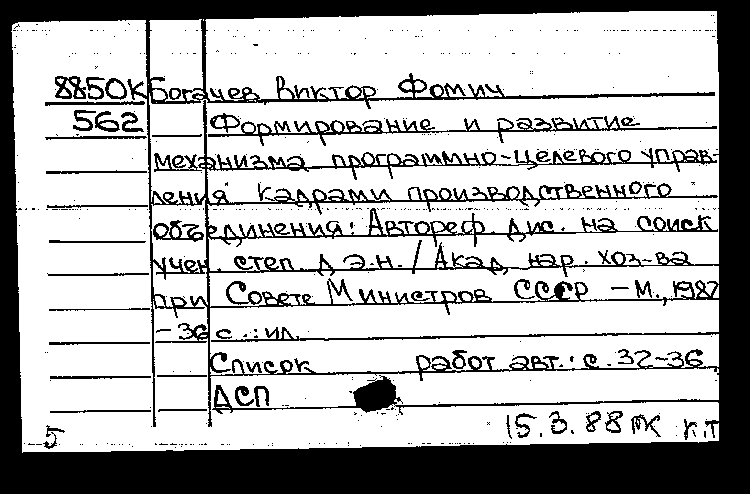 8850К Богачев, Виктор Фомич
562 Формирование и развитие
механизма программно-целевого управ-
ления кадрами производственного
объединения: Автореф. дис. на соиск
учен. степ. д.э.н. / Акад. нар. хоз-ва
при Совете Министров СССР – М., 1987
– 36 с.: ил.
Список работ авт.: с. 32-36.
ДСП
5 15.3.88 к.т